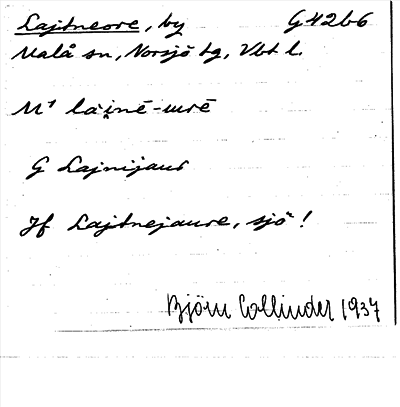 Lajtneore, by G42b6
Malå sn, Norsjö tg, Vbt l.
M¹ lài̯nē-urē
G Lajnijaur
Jf Lajtnejaure, sjö!
Björn Collinder 1937